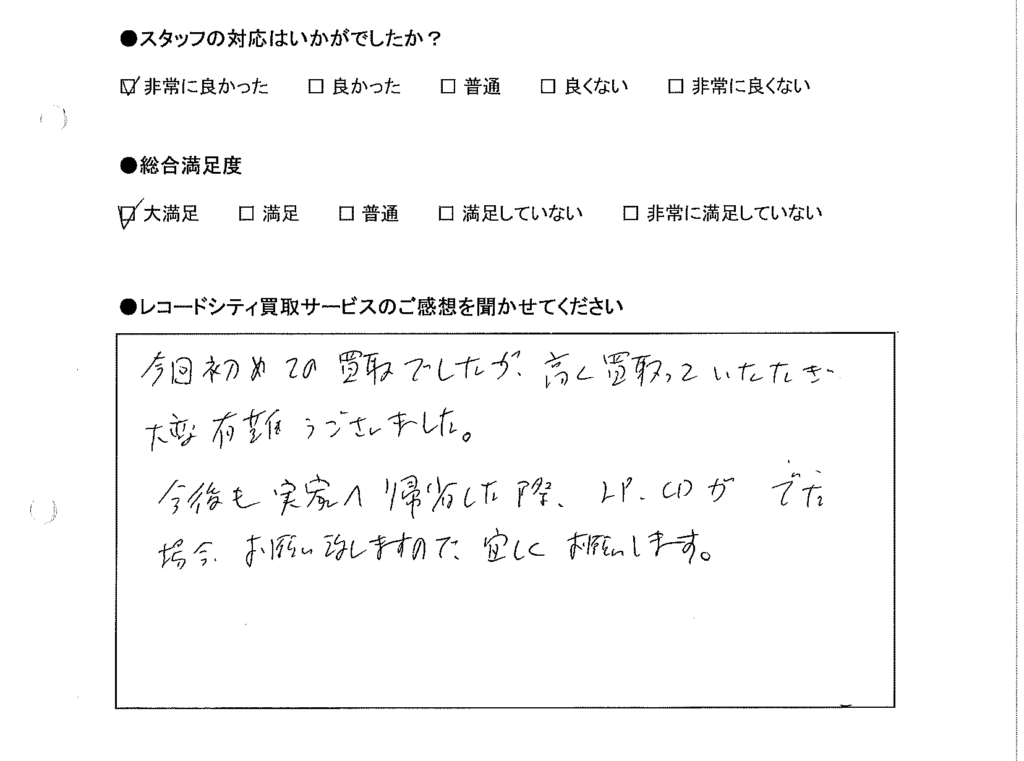 ●スタッフの対応はいかがでしたか？
☑ 非常に良かった □ 良かった □ 普通 □ 良くない □ 非常に良くない
●総合満足度
☑ 大満足 □ 満足 □ 普通 □ 満足していない □ 非常に満足していない
●レコードシティ買取サービスのご感想を聞かせてください
今回初めての買取でしたが、高く買取っていただき
大変有難うございました。
今後も実家へ帰省した際、LP、CDがでた
場合、お願い致しますので、宜しくお願いします。